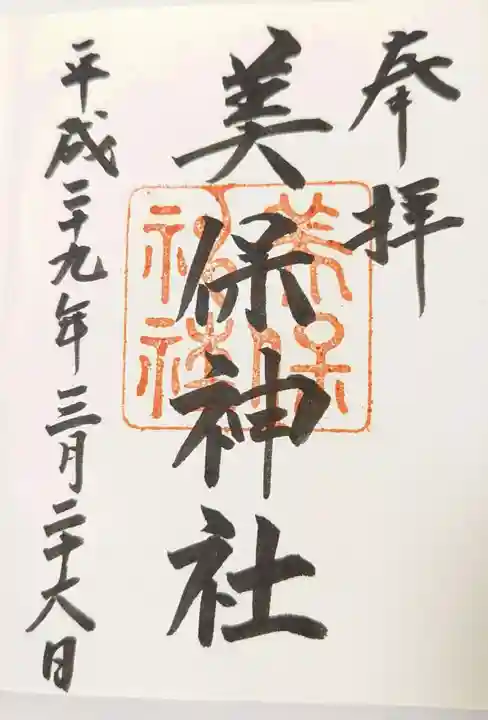 奉拝
美保神社
美保神社
平成二十九年三月二十八日